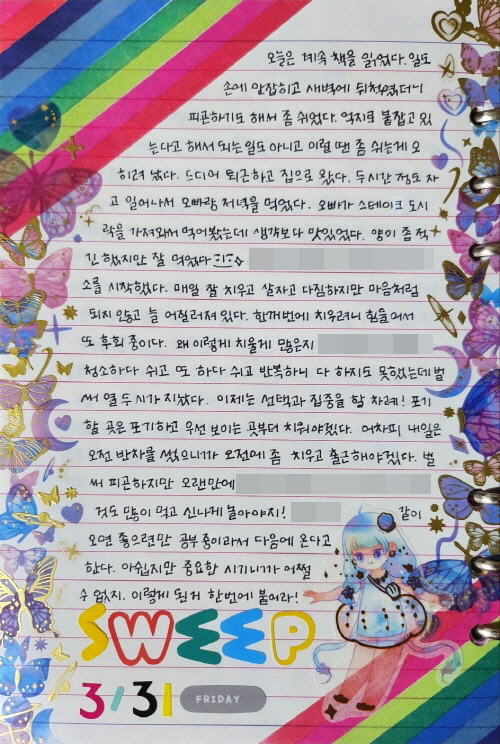 오늘은 계속 책을 읽었다. 일도
손에 안잡히고 새벽에 뒤척였더니
피곤하기도 해서 좀 쉬었다. 억지로 붙잡고 있
는다고 해서 되는 일도 아니고 이럴 땐 좀 쉬는게 오
히려 낫다. 드디어 퇴근하고 집으로 왔다. 두시간 정도 자
고 일어나서 오빠랑 저녁을 먹었다. 오빠가 스테이크 도시
락을 가져와서 먹어봤는데 생각보다 맛있었다. 양이 좀 적
긴 했지만 잘 먹었다
소를 시작했다. 매일 잘 치우고 살자고 다짐하지만 마음처럼
되지 않고 늘 어질러져 있다. 한꺼번에 치우려니 힘들어서
또 후회 중이다. 왜 이렇게 치울게 많은지
청소하다 쉬고 또 하다 쉬고 반복하니 다 하지도 못했는데 벌
써 열두시가 지났다. 이제는 선택과 집중을 할 차례! 포기
할 곳은 포기하고 우선 보이는 곳부터 치워야겠다. 어차피 내일은
오전 반차를 썼으니까 오전에 좀 치우고 출근해야겠다. 벌
써 피곤하지만 오랜만에
것도 많이 먹고 신나게 놀아야지! 같이
오면 좋으련만 공부중이라서 다음에 온다고
한다. 아쉽지만 중요한 시기니까 어쩔
수 없지. 이렇게 된거 한번에 붙어라!
SWEEP
3/31 FRIDAY